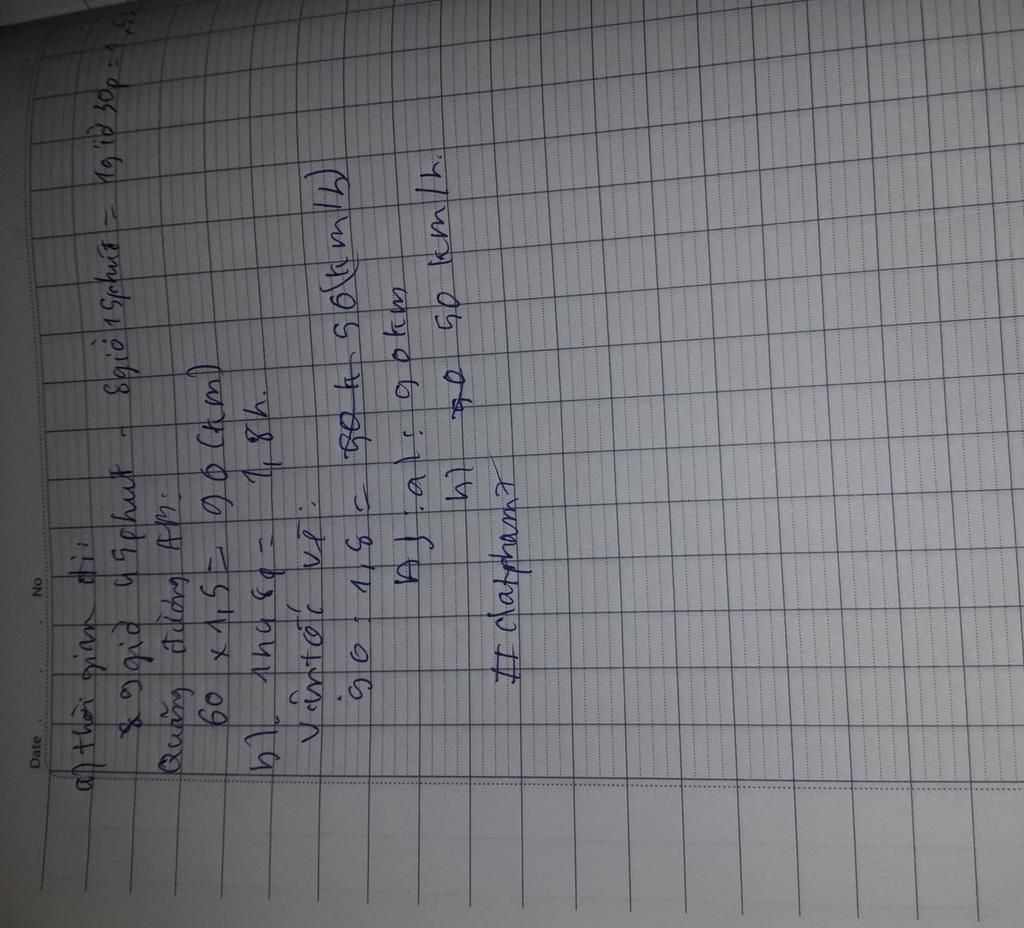 Date No
a) thời gian đi:
9 giờ 45phut - 8giờ 15phut = 1giờ 30p = 1,5
Quãng đường AB:
60 x 1,5 = 90 (km)
b) 1h48p = 1,8h.
Vận tốc về:
90 : 1,8 = 50 (km/h)
a) : 90km
b) 50 km/h.